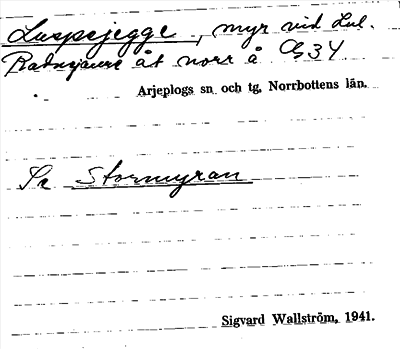 Luspejegge, myr vid Lul.
Radnejaure åt norr å G34
Arjeplogs sn och tg, Norrbottens län.
Sv Stormyran
Sigvard Wallström, 1941.